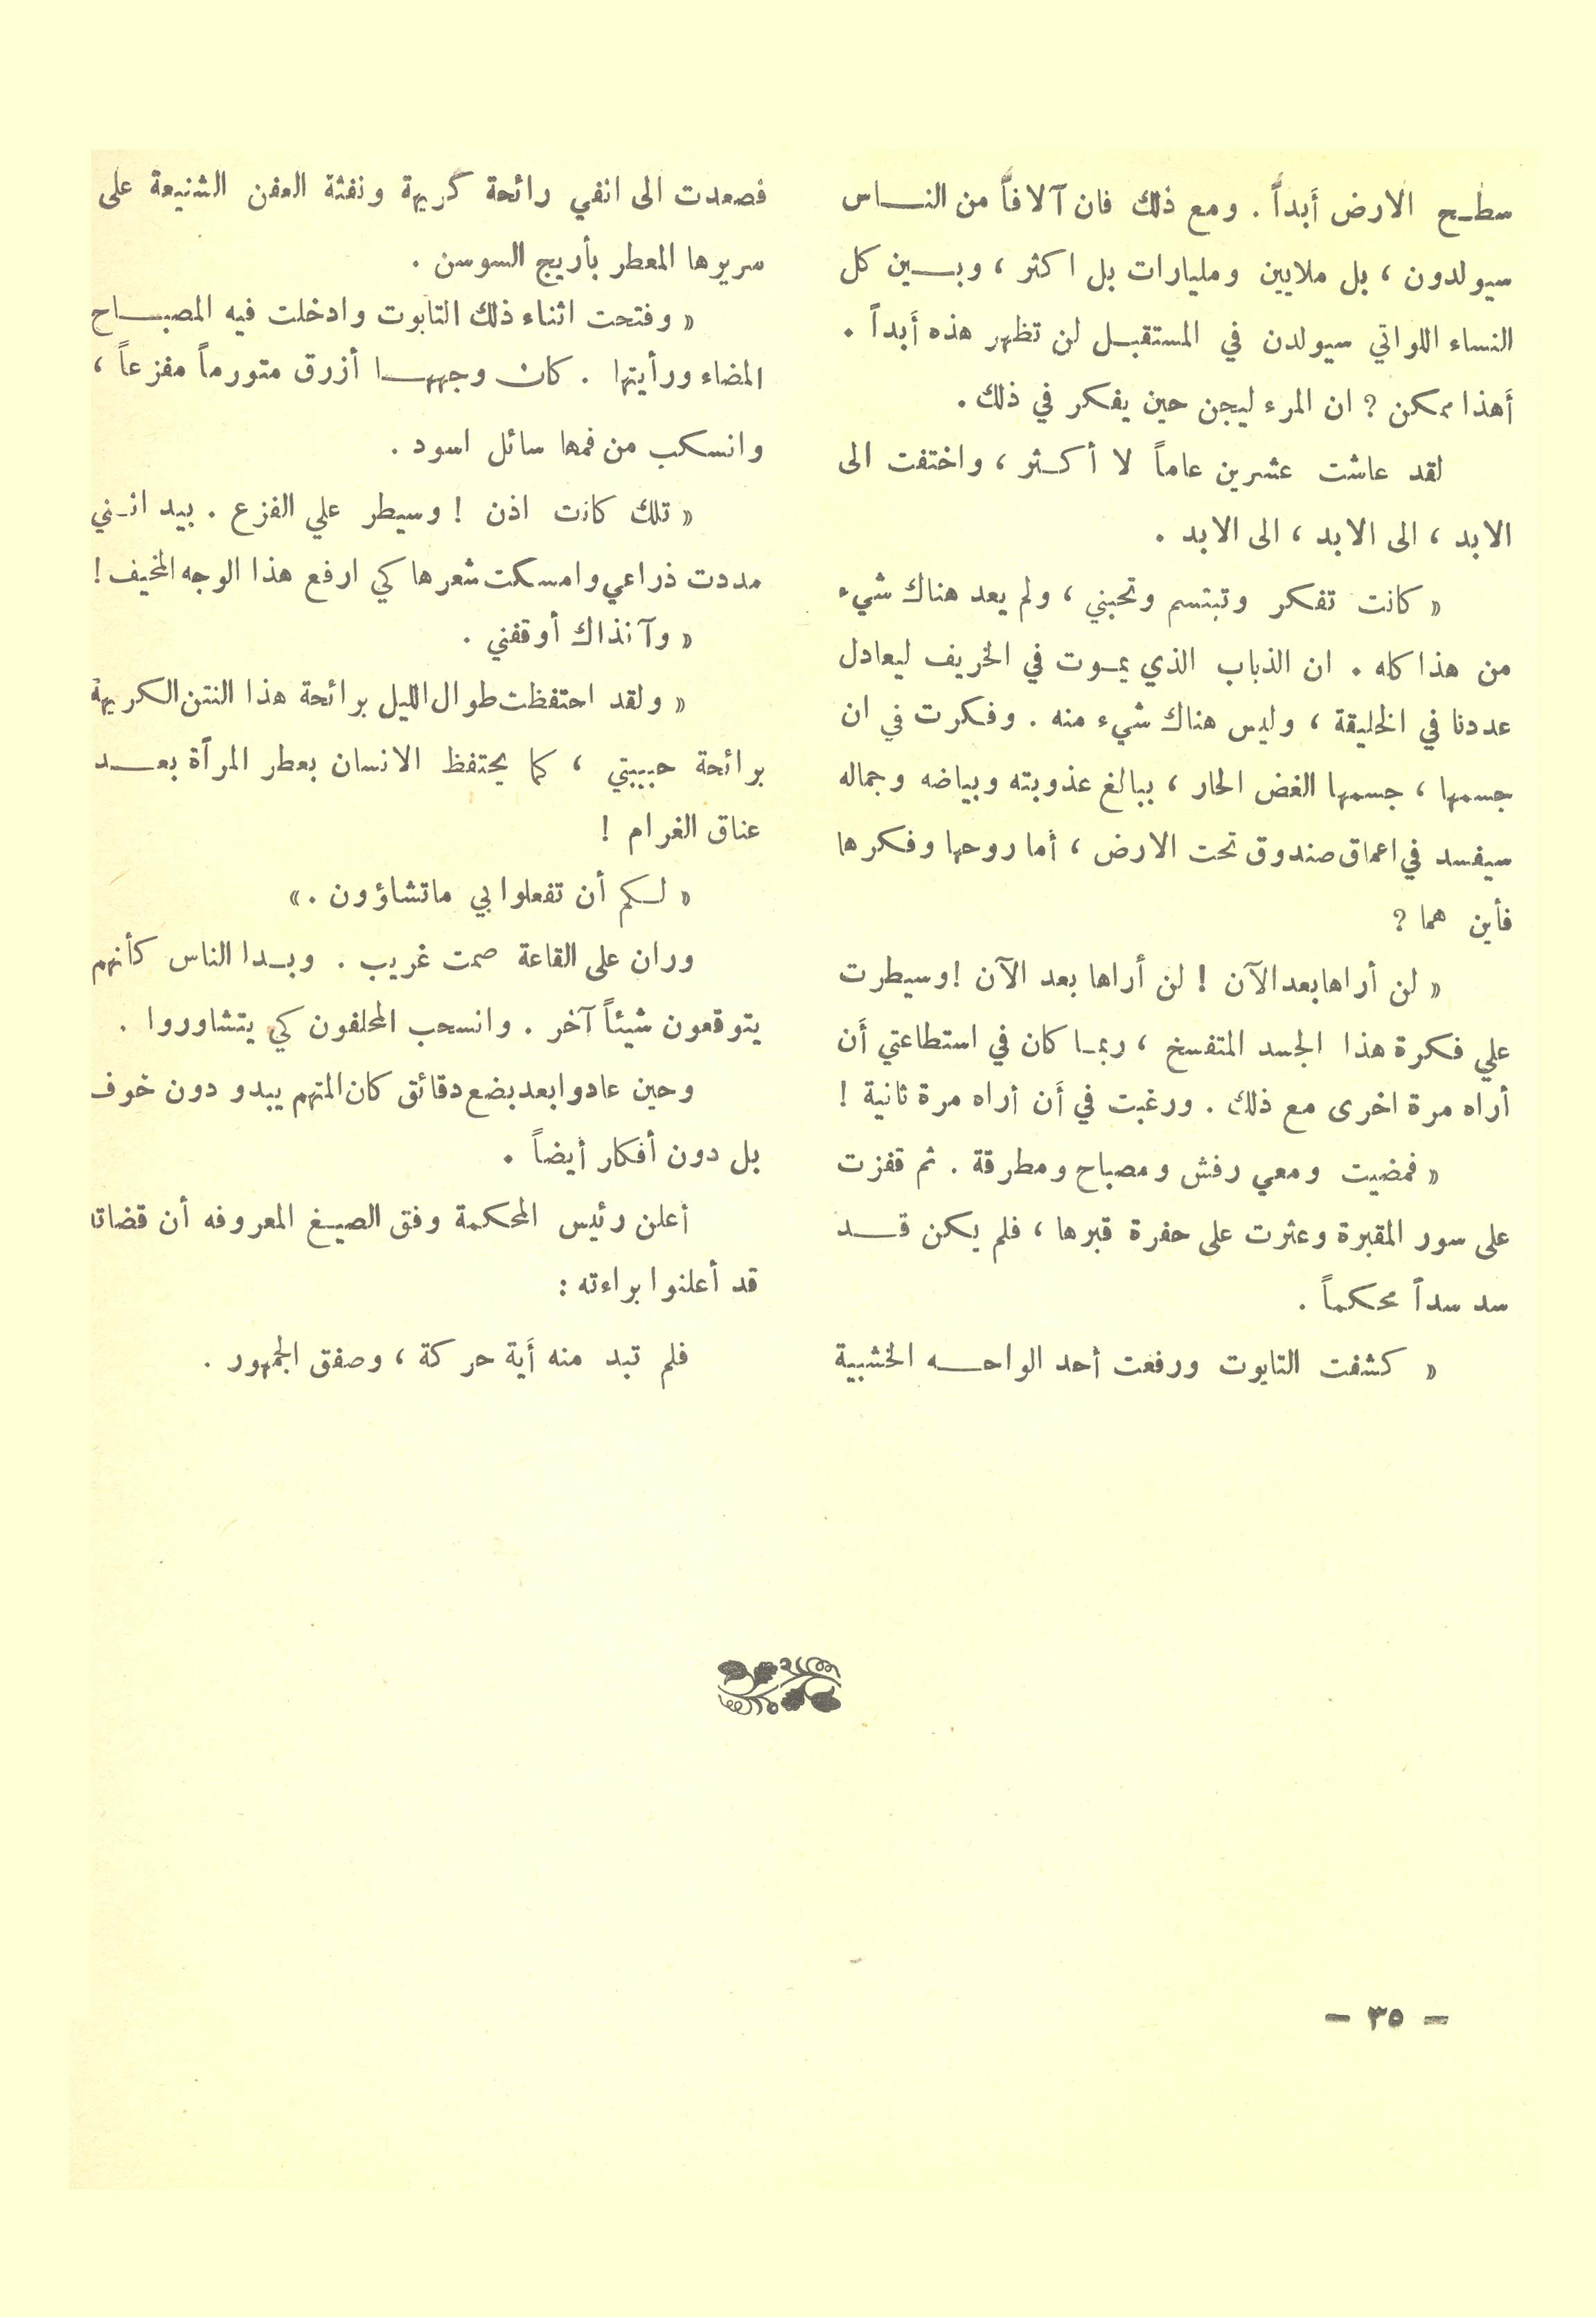 سطح الارض أبداً . ومع ذلك فان آلافاً من الناس
سيولدون ، بل ملايين ومليارات بل اكثر ، وبين كل
النساء اللواتي سيولدن في المستقبل لن تظهر هذه أبداً .
أهذا ممكن ? ان المرء ليجن حين يفكر في ذلك .
لقد عاشت عشرين عاماً لا أكثر ، واختفت الى
الابد ، الى الابد ، الى الابد .
« كانت تفكر وتبتسم وتحبني ، ولم يعد هناك شيء
من هذا كله . ان الذباب الذي يموت في الخريف ليعادل
عددنا في الخليقة ، وليس هناك شيء منه . وفكرت في ان
جسمها ، جسمها الغض الحار ، ببالغ عذوبته وبياضه وجماله
سيفسد في اعماق صندوق تحت الارض ، أما روحها وفكرها
فأين هما ?
« لن أراها بعد الآن ! لن أراها بعد الآن ! وسيطرت
علي فكرة هذا الجسد المتفسخ ، ربما كان في استطاعتي أن
أراه مرة اخرى مع ذلك . ورغبت في أن أراه مرة ثانية !
« فمضيت ومعي رفش ومصباح ومطرقة . ثم قفزت
على سور المقبرة وعثرت على حفرة قبرها ، فلم يكن قد
سد سداً محكماً .
« كشفت التابوت ورفعت أحد الواحه الخشبية
فصعدت الى انفي رائحة كريهة ونفثة العفن الشنيعة على
سريرها المعطر بأريج السوسن .
« وفتحت اثناء ذلك التابوت وادخلت فيه المصباح
المضاء ورأيتها . كان وجهها أزرق متورماً مفزعاً ،
وانسكب من فمها سائل اسود .
« تلك كانت اذن ! وسيطر علي الفزع . بيد انني
مددت ذراعي وامسكت شعرها كي ارفع هذا الوجه المخيف !
« وآنذاك أوقفني .
« ولقد احتفظت طوال الليل برائحة هذا النتن الكريهة
برائحة حبيبتي ، كما يحتفظ الانسان بعطر المرأة بعد
عناق الغرام !
« لكم أن تفعلوا بي ماتشاؤون . »
وران على القاعة صمت غريب . وبدا الناس كأنهم
يتوقعون شيئاً آخر . وانسحب المحلفون كي يتشاوروا .
وحين عادوا بعد بضع دقائق كان المتهم يبدو دون خوف
بل دون أفكار أيضاً .
أعلن رئيس المحكمة وفق الصيغ المعروفه أن قضاته
قد أعلنوا براءته :
فلم تبد منه أية حركة ، وصفق الجمهور .
- ٣٥ -